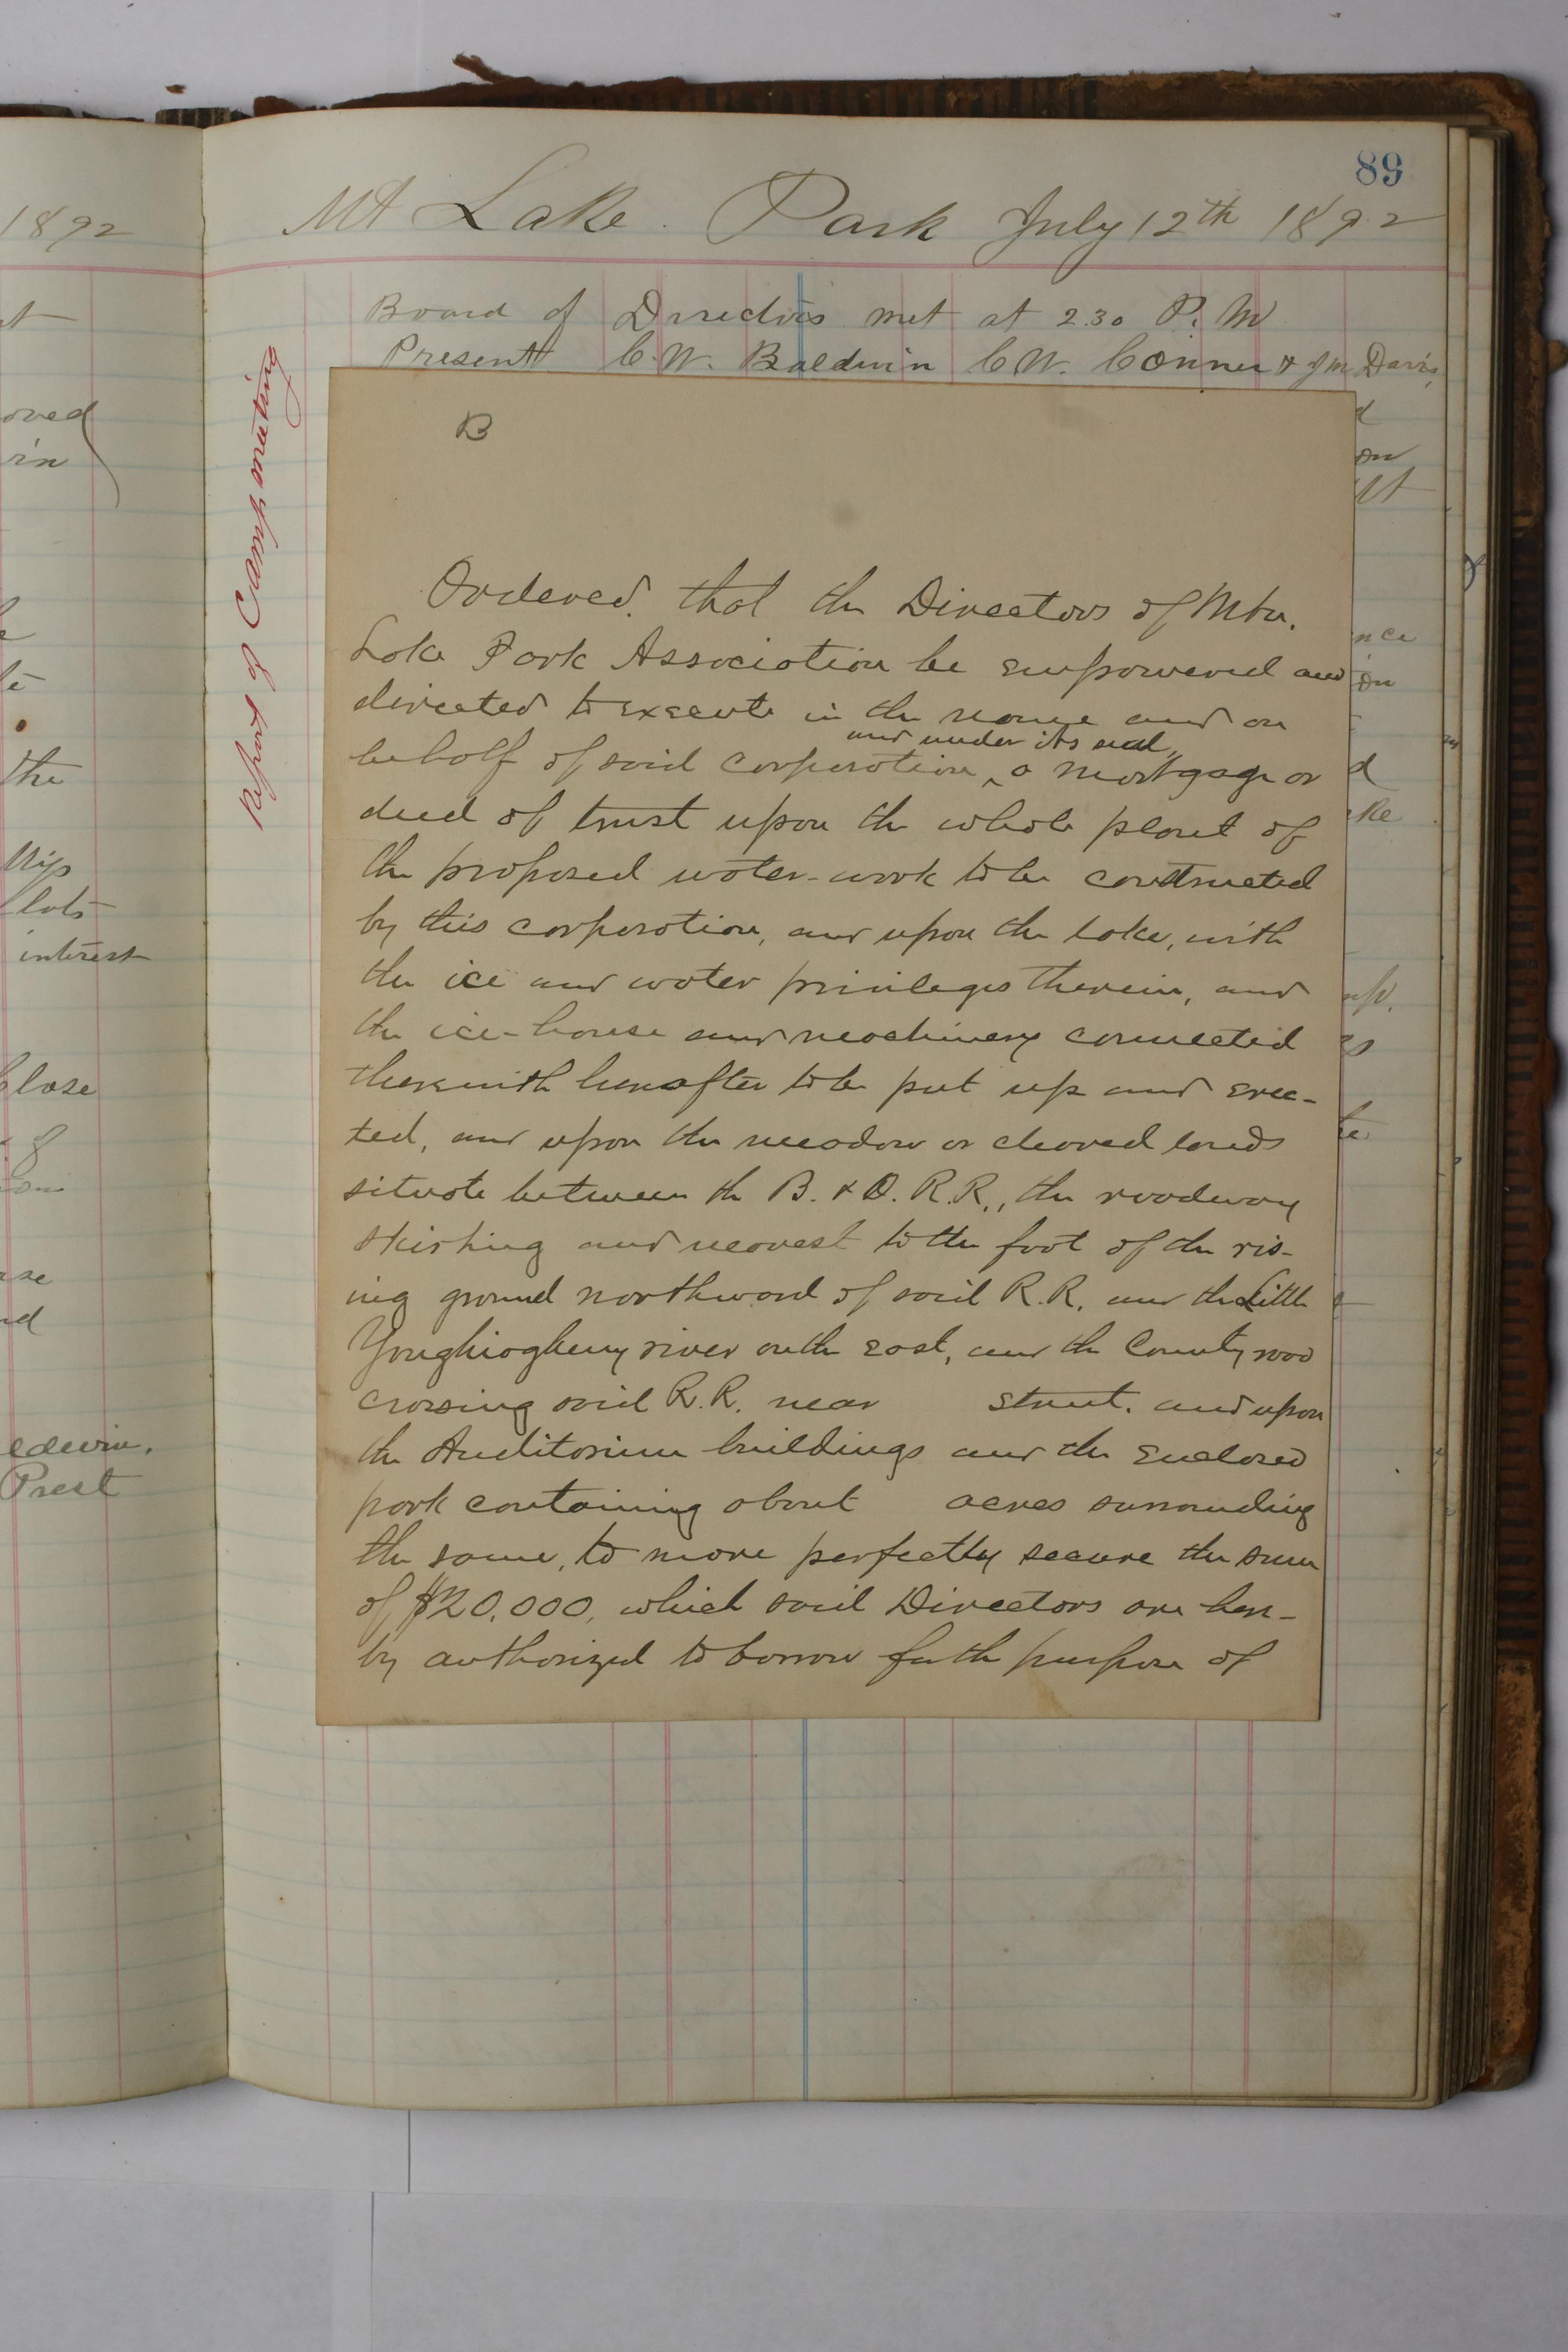 1892
oved
in
the
lots
interest
close
Prest
89
Mt Lake Park July 12th 1892
Report of Camp meeting
Board of Directors met at 2.30 P. M
Present C. W. Baldwin C W. Conner & J M Davis,
B
Ordered, that the Directors of Mtn.
Lake Park Association be empowered and
directed to execute in the name and on
and under its seal
behalf of said corporation, ^ a mortgage or
deed of trust upon the whole plant of
the proposed water-work to be constructed
by this corporation, and upon the lake, with
the ice and water privileges therein, and
the ice-house and machinery connected
therewith hereafter to be put up and erec-
ted, and upon the meadow or cleared lands
situate between the B. & O. R.R., the roadway
skirting and nearest to the foot of the ris-
ing ground northward of said R.R. and the Little
Youghiogheny river on the east, and the County road
crossing said R.R. near street. and upon
the Auditorium buildings and the enclosed
park containing about acres surrounding
the same, to more perfectly secure the sum
of $20,000, which said Directors are here-
by authorized to borrow for the purpose of